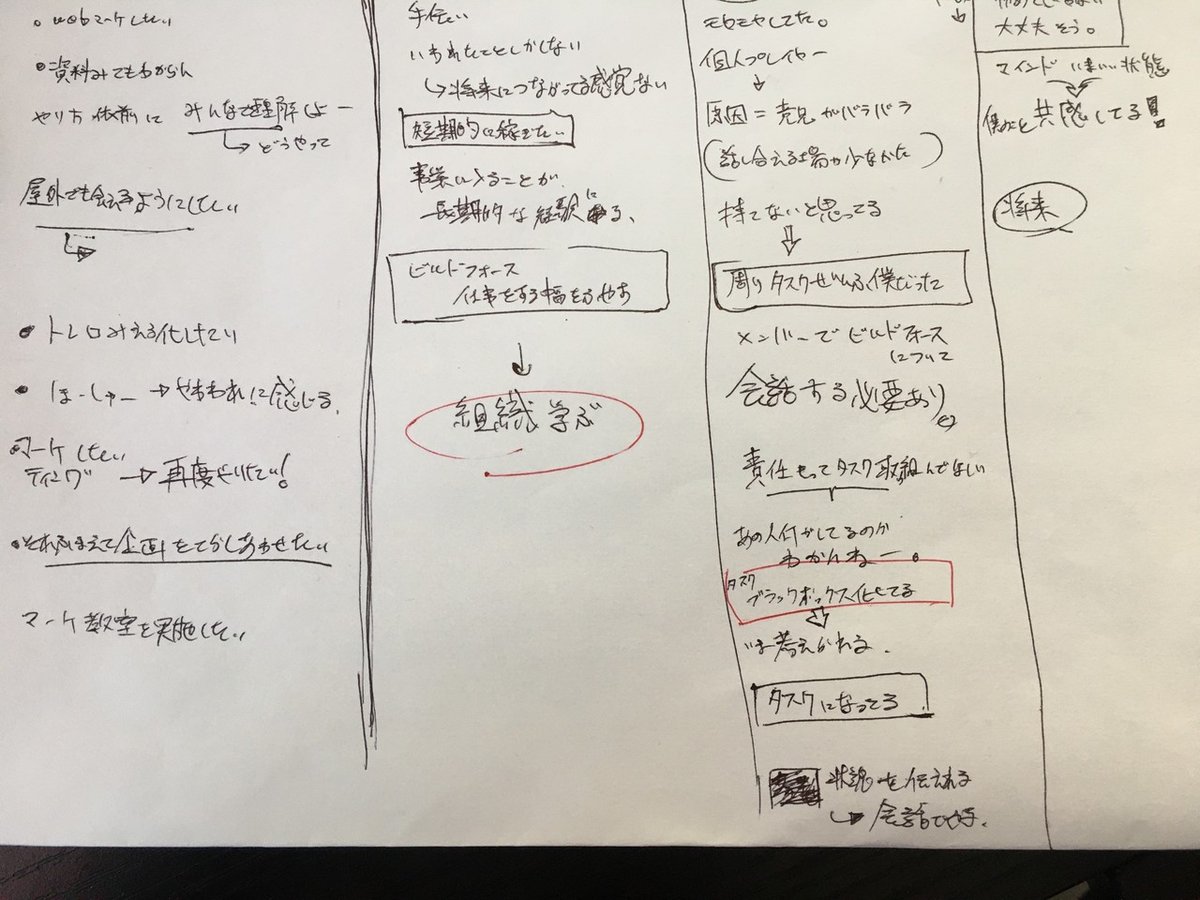 webマーケしたい
資料みてもわからん
やり方 依前に みんなで理解しよー
どうやって
屋外でも会えるようにしたい
トレロみえる化したい
ほーしゅー → やわわれに感じる。
マーケ したい
ティング → 再度やりたい!
それふまえて企画をてらしあわせたい
マーケ教室を実施したい
手伝い
いわれたことしかしない
将来につながってる感覚ない
短期的に稼ぎたい
事業に入ることが
長期的な経験になる、
ビルドフォース
仕事をする幅をふやす
組織 学ぶ
モヤモヤしてた。
個人プレイヤー
原因 = 売児がバラバラ
(話し合える場が少なかた)
持てないと思ってる
周りタスクぜいいん僕だった
メンバーでビルドフォース
について
会話する必要あり。
責任もってタスク取組んでほしい
あの人何かしてるのか
わかんねー。
タスク
ブラックボックス化してる
いま考えかれる、
タスクになってる
状況を伝えれる
会話でやす、
大丈夫そう。
マインド いまいい状態
僕みと共感してる!
将来